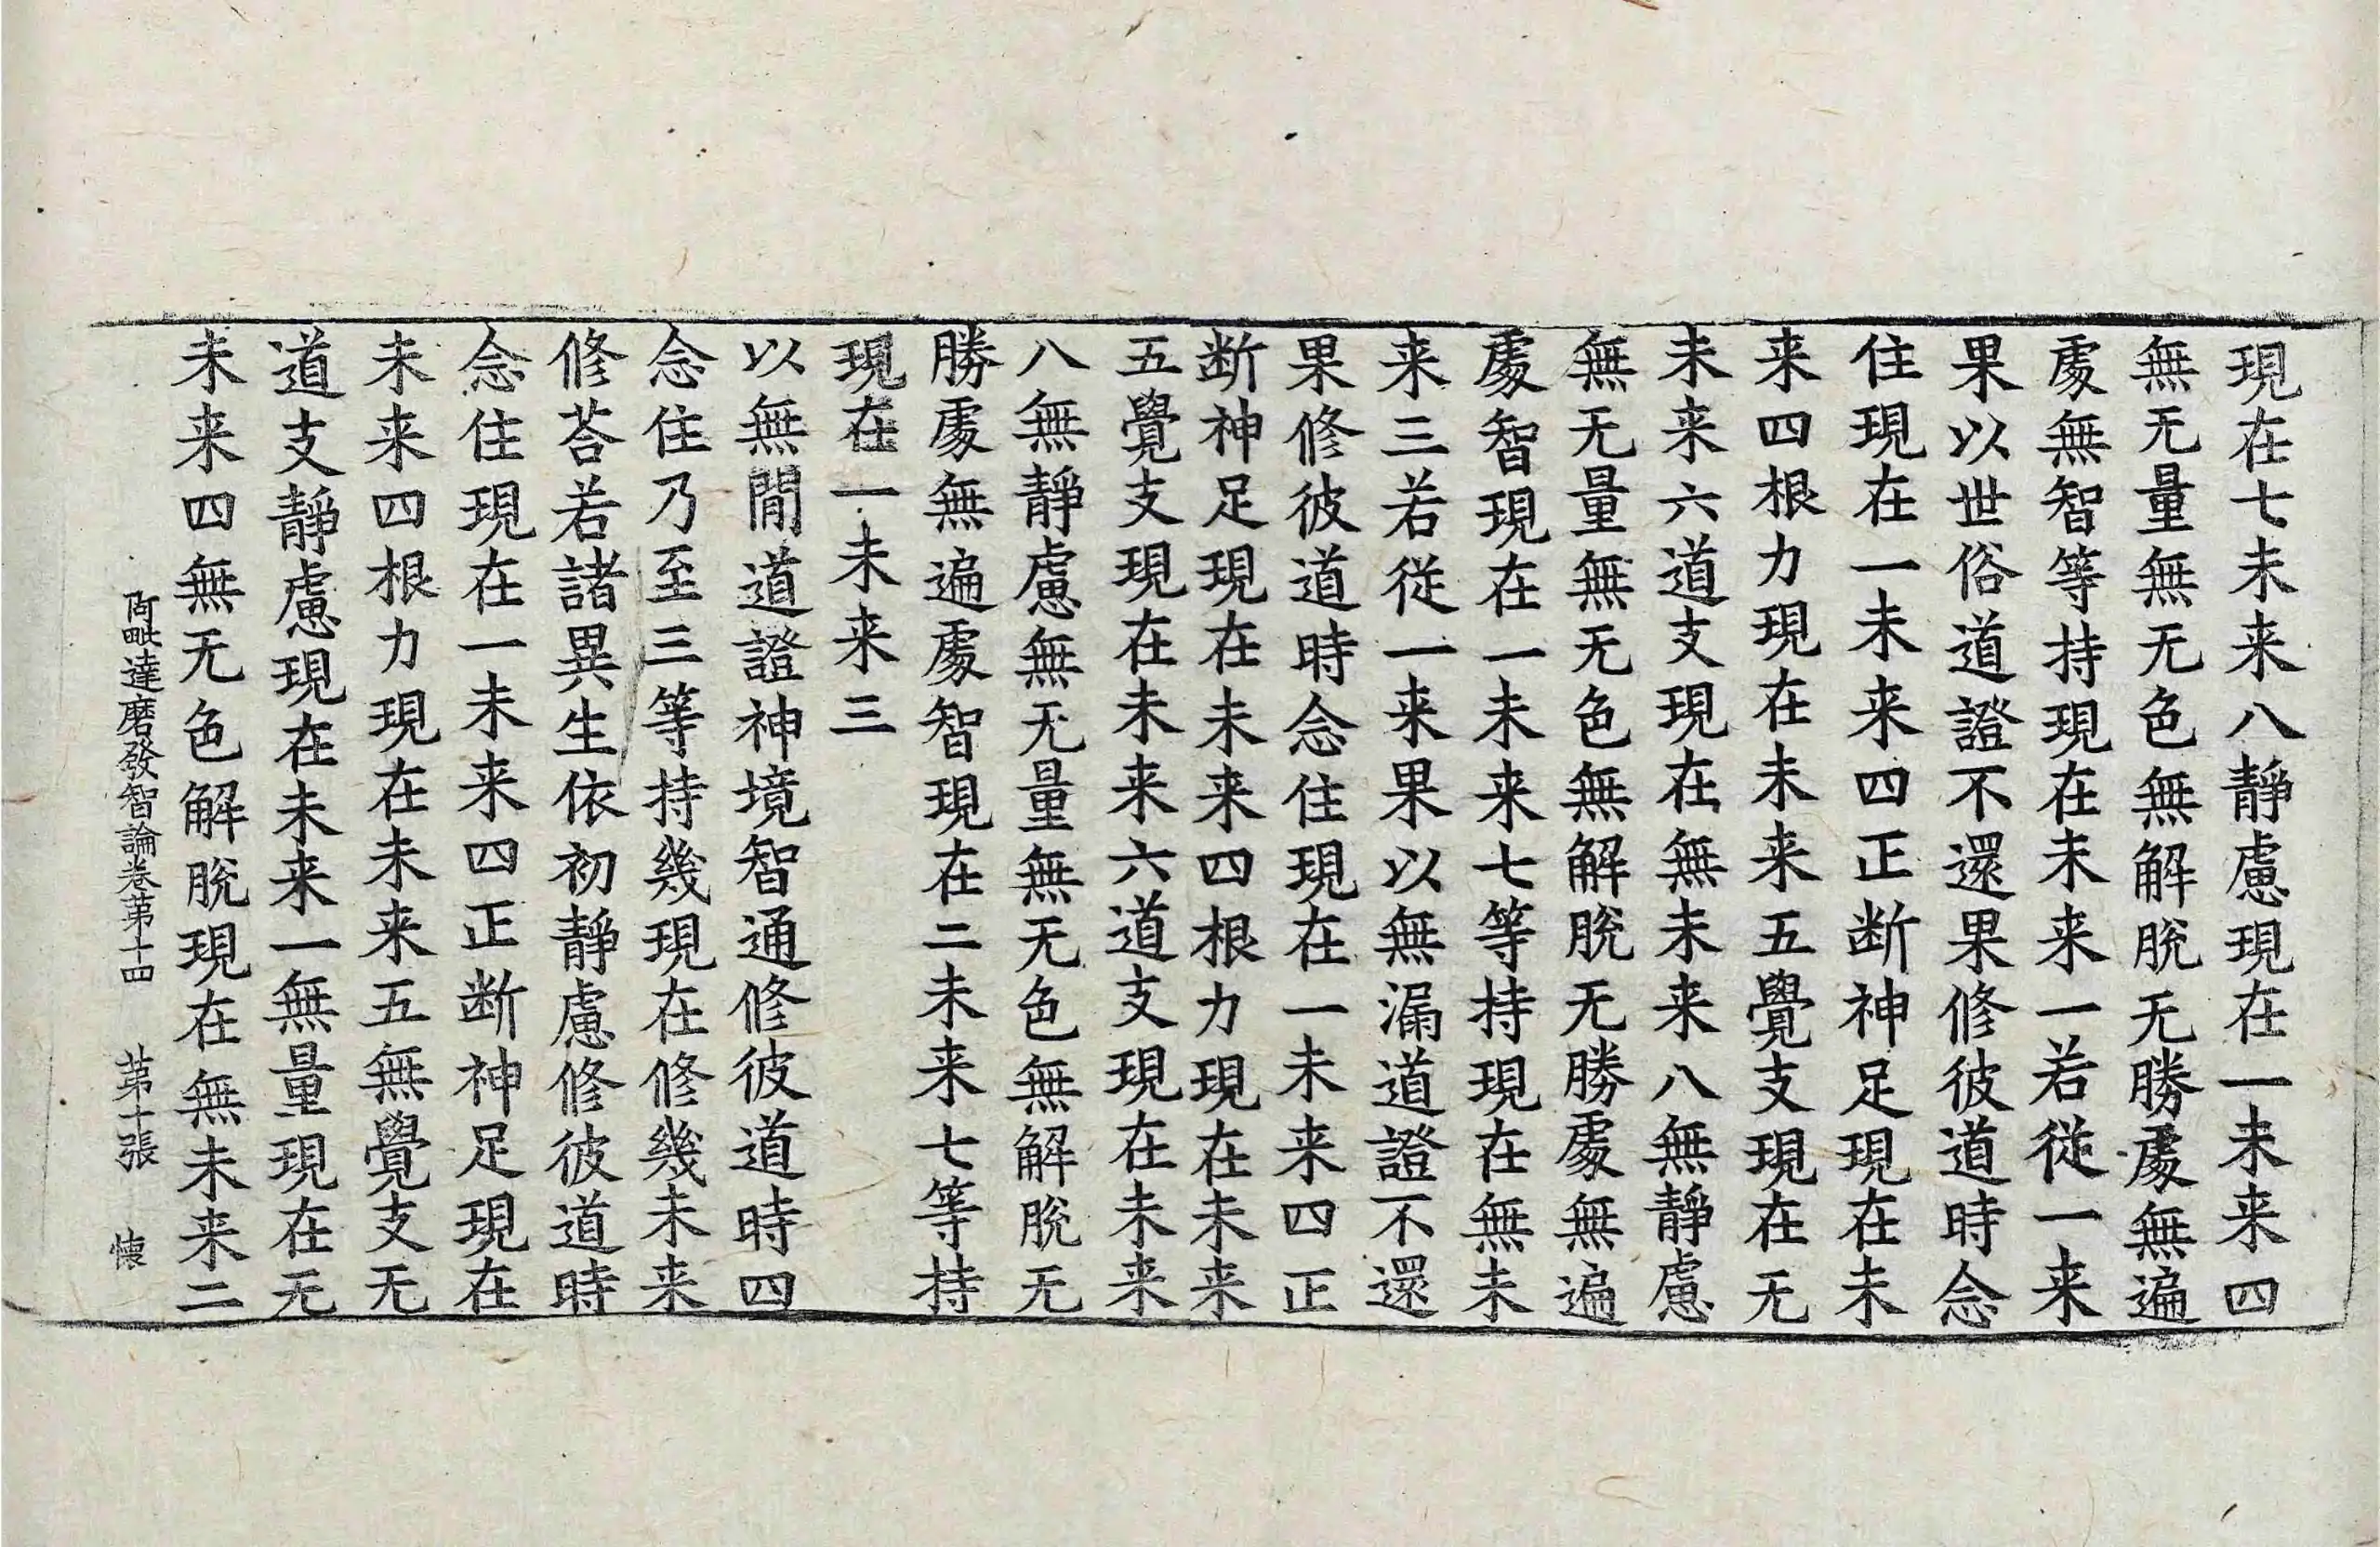 現在七未来八靜慮現在一未来四
無无量無无色無解脫无勝處無遍
處無智等持現在未来一若從一来
果以世俗道證不還果修彼道時念
住現在一未来四正断神足現在未
来四根力現在未来五覺支現在无
未来六道支現在無未来八無靜慮
無无量無无色無解脫无勝處無遍
處智現在一未来七等持現在無未
来三若從一来果以無漏道證不還
果修彼道時念住現在一未来四正
断神足現在未来四根力現在未来
五覺支現在未来六道支現在未来
八無靜慮無无量無无色無解脫无
勝處無遍處智現在二未来七等持
現在一未来三
以無間道證神境智通修彼道時四
念住乃至三等持幾現在修幾未来
修荅若諸異生依初靜慮修彼道時
念住現在一未来四正断神足現在
未来四根力現在未来五無覺支无
道支靜慮現在未来一無量現在无
未来四無无色解脫現在無未来二
阿毗達磨發智論卷第十四 第十張 懐